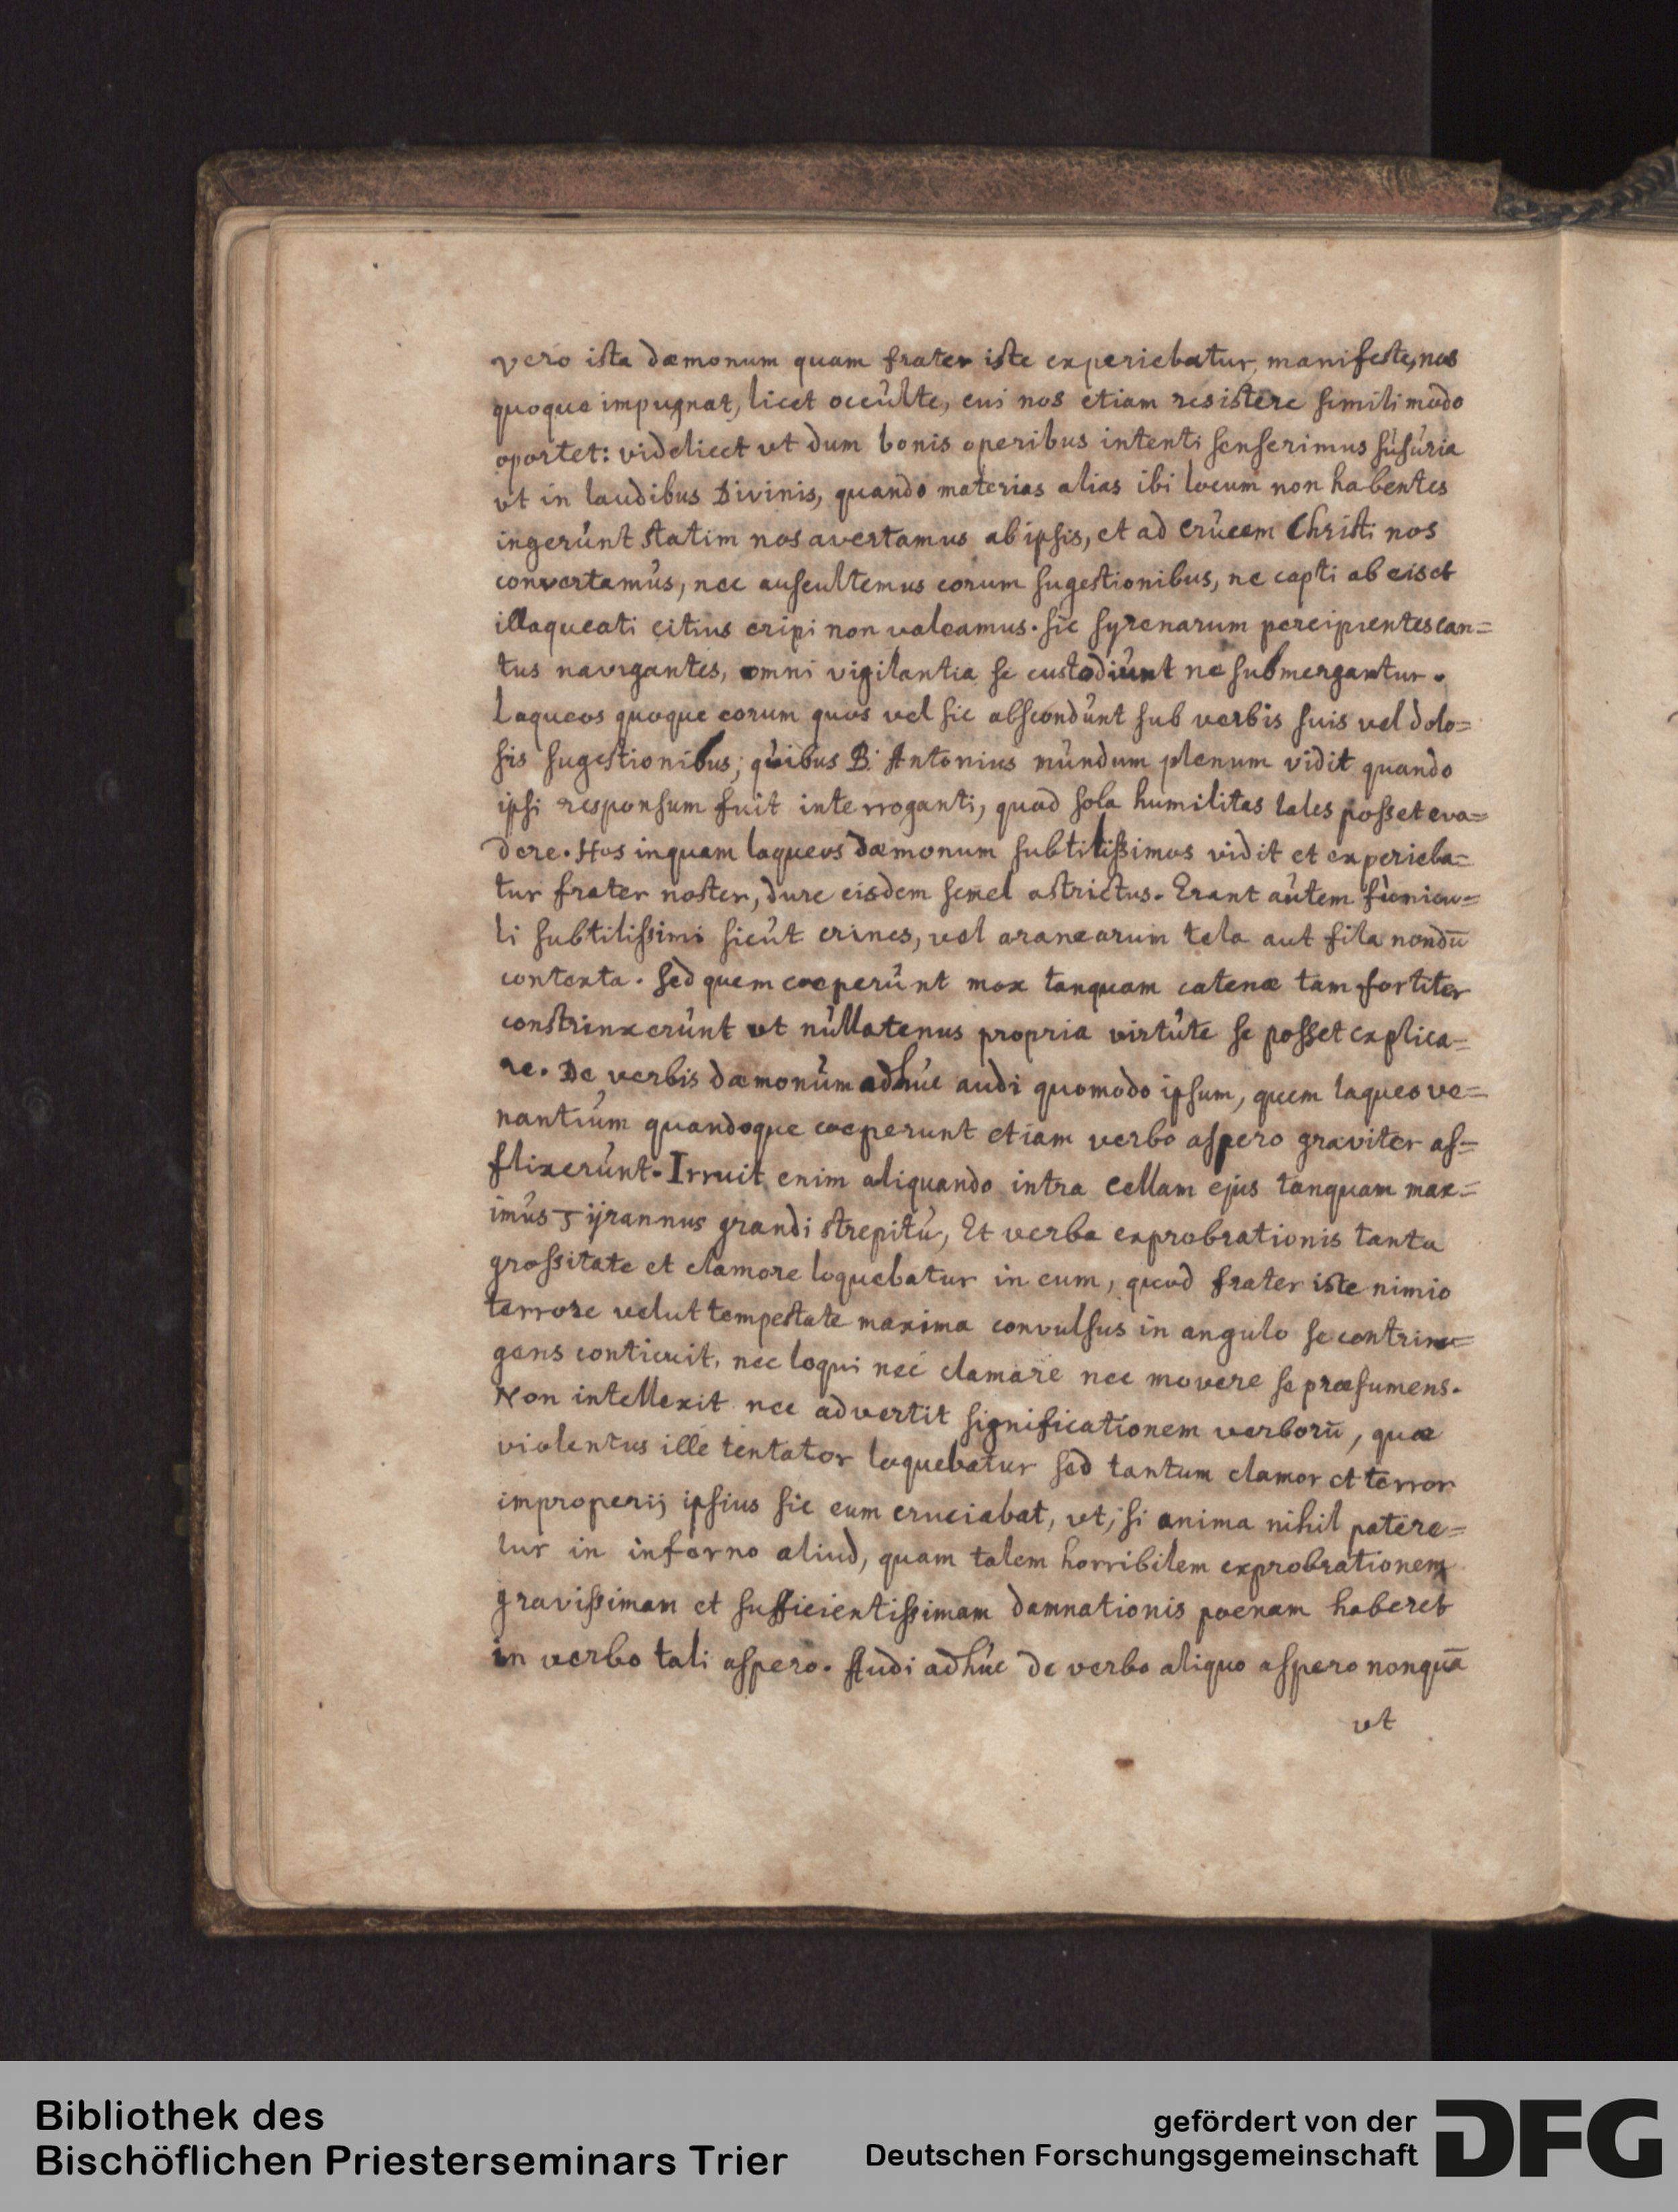 vero ista dæmonum quam frater iste experiebatur, manifeste, nos
quoque impugnat, licet occùlte, cui nos etiam resistere simili modo
oportet: videlicet vt dum bonis operibus intenti senserimus sùsùria
vt in laudibus Divinis, quando materias alias ibi locum non habentes
ingerùnt statim nos avertamus ab ipsis, et ad crùcem Christi nos
convertamùs, nec auscultemus eorum sugestionibus, ne capti ab eis et
illaqueati citius eripi non valeamus. sic syrenarum percipientes can=
tus navigantes, omni vigilantia se custodiùnt ne submergantur.
Laqueos quoque eorum quos vel sic abscondùnt sub verbis suis vel dolo=
sis sugestionibus; quibus B. Antonius mùndum plenum vidit quando
ipsi responsum fuit interroganti, quod sola humilitas tales posset eva=
dere. Hos inquam laqueos dæmonum subtilissimos vidit et experieba=
tur frater noster, dure eisdem semel astrictus. Erant aùtem fùnicu=
li subtilissimi sicùt crines, vel aranearum tela aut fila nondū
contexta. sed quem coeperùnt mox tanquam catenæ tam fortiter
constrinxerùnt vt nùllatenus propria virtùte se posset explica=
re. De verbis dæmonùm adhùc audi quomodo ipsum, quem laqueo ve=
nantiùm quandoque coeperunt etiam verbo aspero graviter af=
flixerùnt. Irruit enim aliquando intra cellam ejus tanquam max=
imùs Tijrannus grandi strepitù, Et verba exprobrationis tanta
grossitate et clamore loquebatur in eum, quod frater iste nimio
terrore velut tempestate maxima convulsus in angulo se contrin=
gens conticuit, nec loqui nec clamare nec movere se præsumens.
Non intellexit nec advertit significationem verborū, quæ
violentus ille tentator loquebatur sed tantum clamor et terror
improperij ipsius sic eum cruciabat, vt, si anima nihil patere=
tur in inferno aliud, quam talem horribilem exprobrationem
gravissimam et sufficientissimam damnationis poenam haberet
in verbo tali aspero. Audi adhùc de verbo aliquo aspero nonquā
vt
Bibliothek des
Bischöflichen Priesterseminars Trier
gefördert von der
Deutschen Forschungsgemeinschaft
DFG